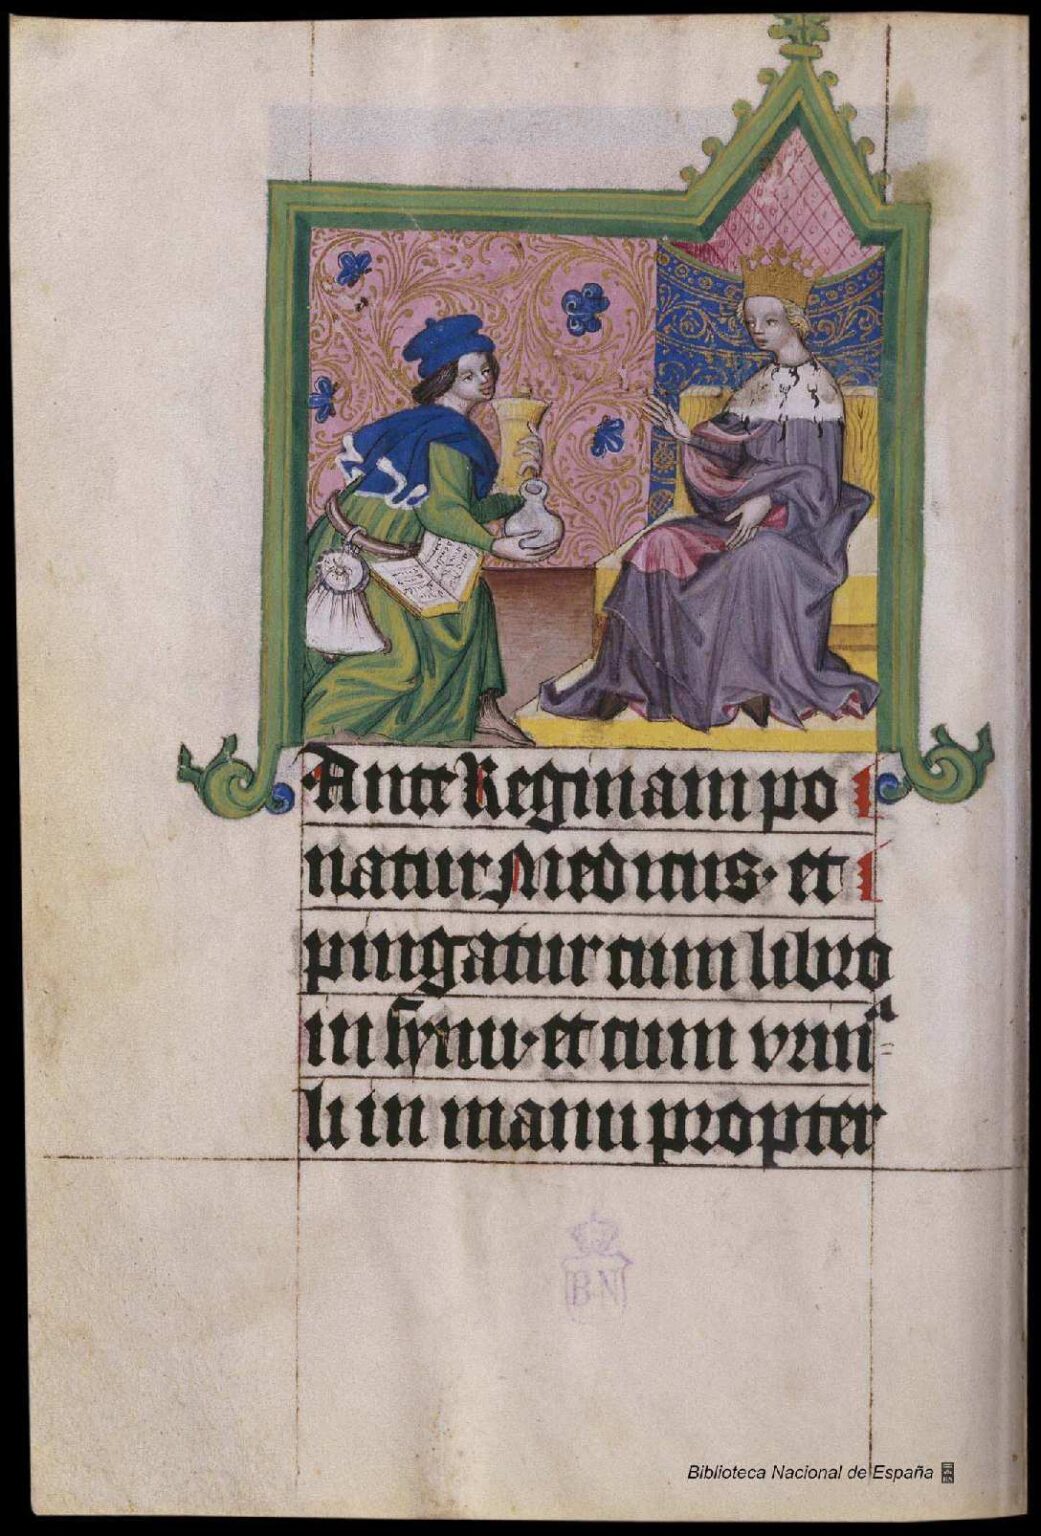 Ante Reginam po
natur Medicus · et
pingatur cum libro
in synu · et cum vrina
li in manu propter
B N
Biblioteca Nacional de España